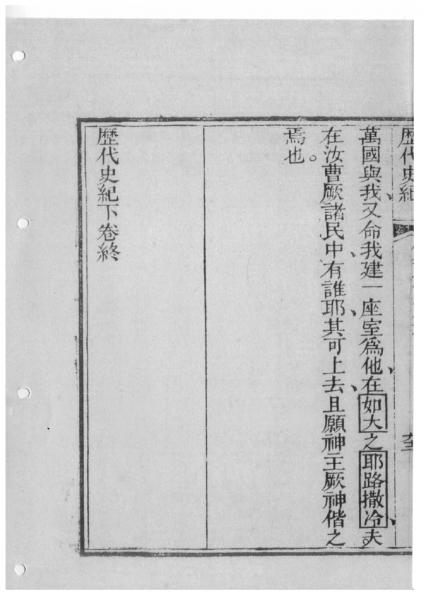 歷代史紀
萬國與我又命我建一座室爲他在如大之耶路撒冷夫
在汝曹厥諸民中有誰耶其可上去且願神主厥神偕之
焉也。
歷代史紀下卷終